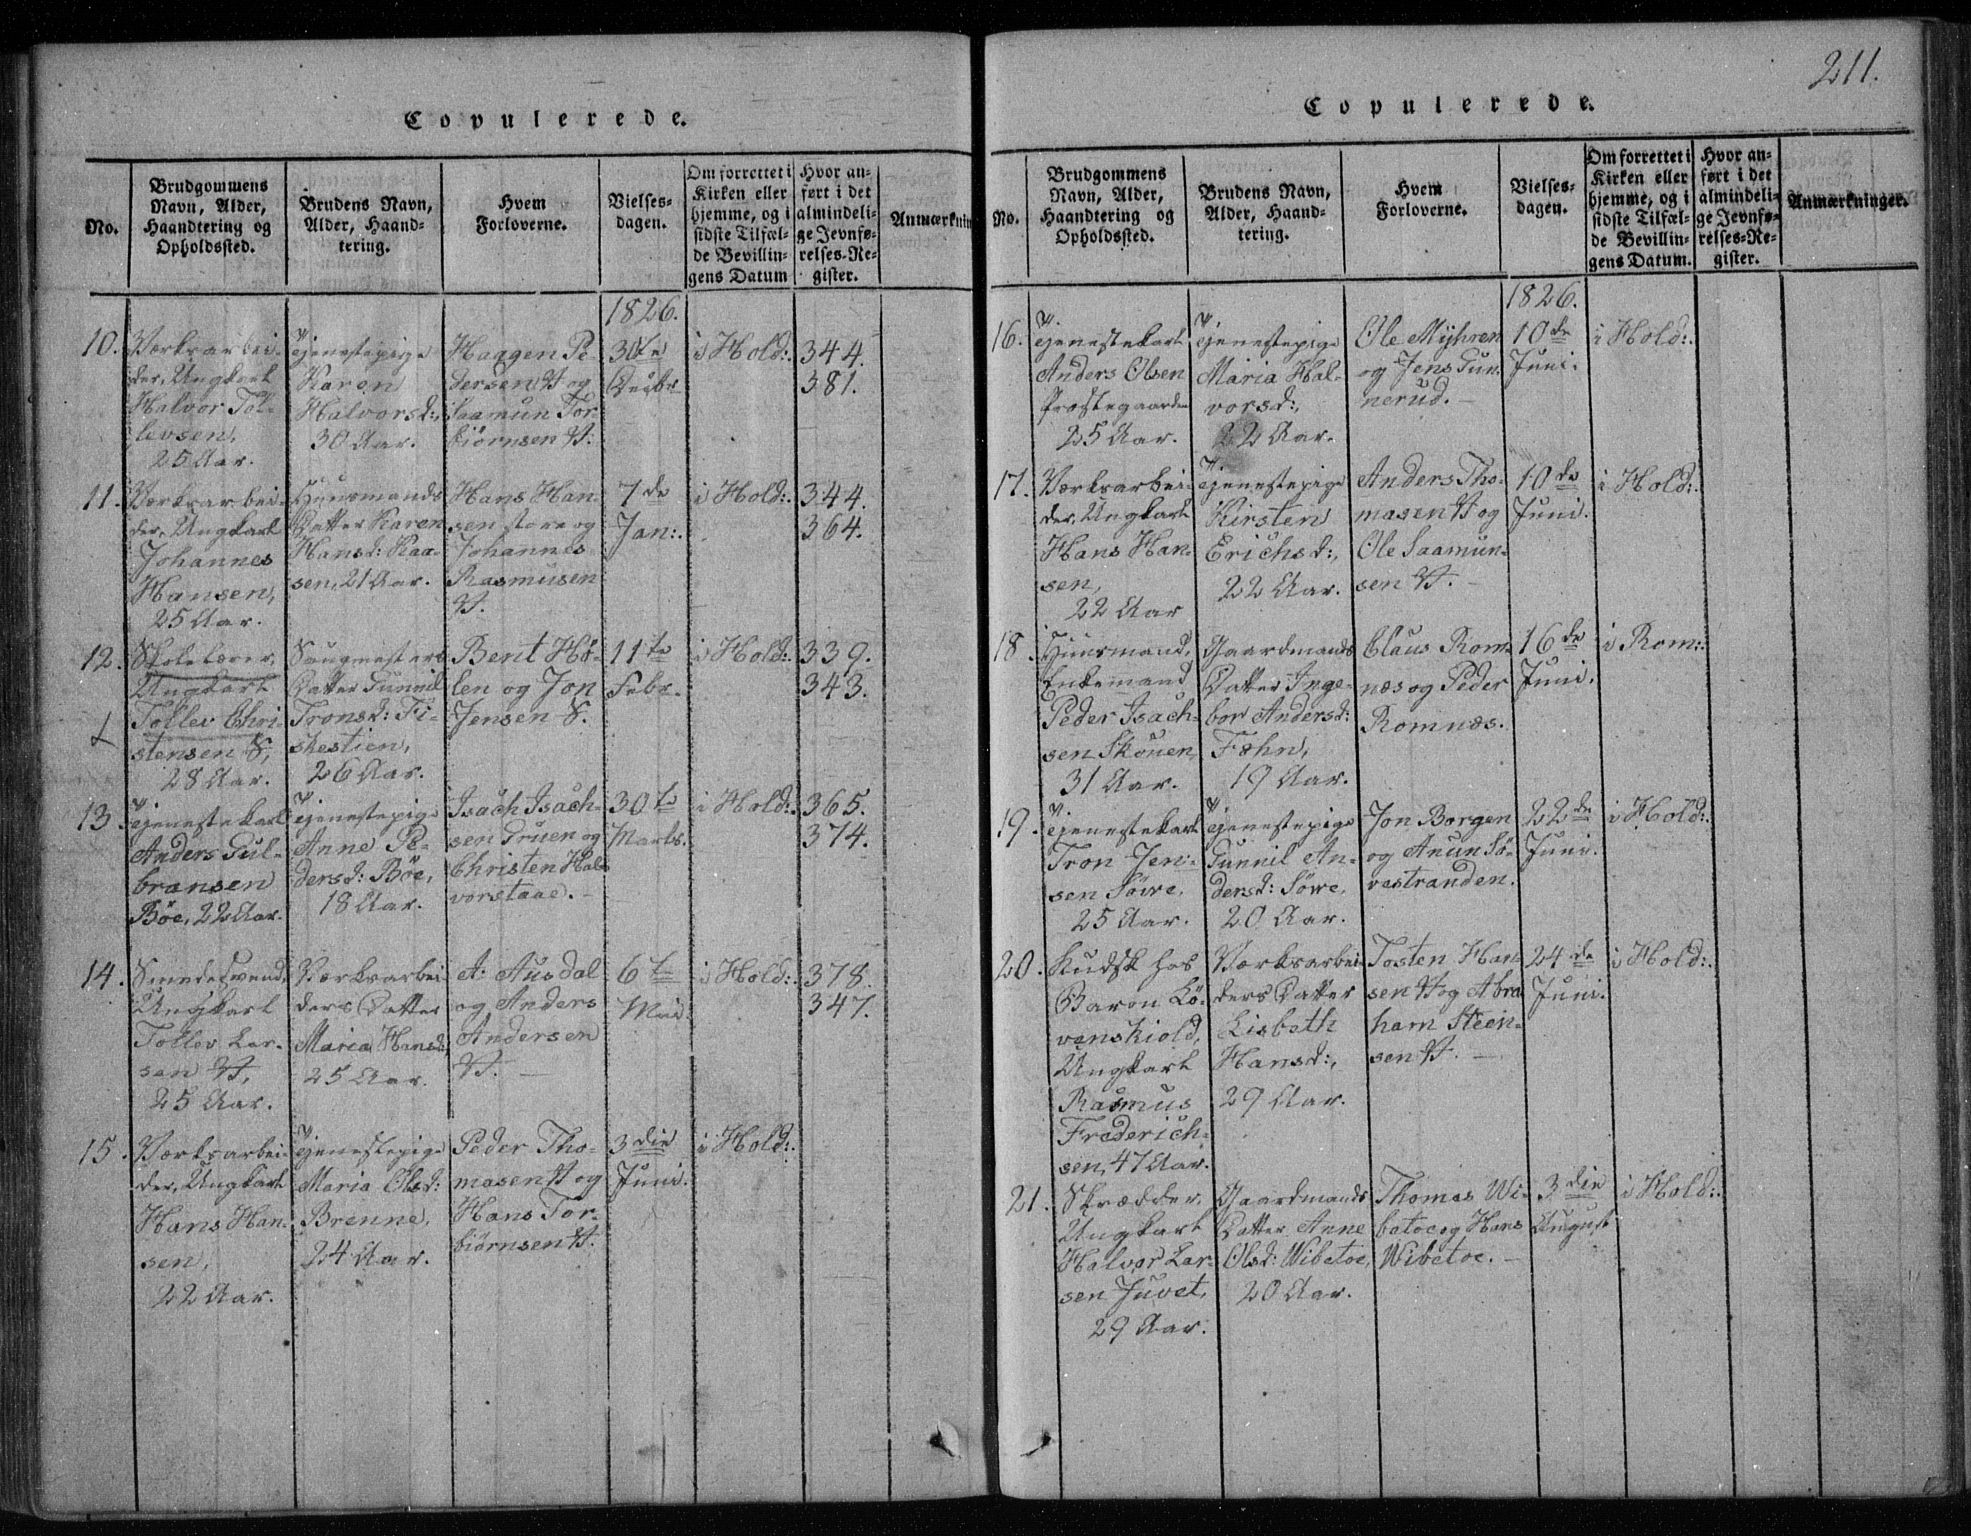 Copulerede.
No.
Brudgommens
Navn, Alder,
Haandtering og
Opholdssted.
Brudens Navn,
Alder, Haand-
tering.
Hvem
Forloverne.
Vielses-
dagen.
Om forrettet i
Kirken eller
hjemme, og i
sidste Tilfæl-
de Bevillin-
gens Datum
Hvor an-
ført i det
almindeli-
ge Jevnfø-
relses-Re-
gister.
Anmærknin
1826.
10.
Værksarbei-
der, Ungkarl
Halvor Tol-
levsen,
25 Aar.
Tjenestepige
Karen
Halvorsd:,
30 Aar.
Haagen Pe-
dersen V og
Saamun Tor-
biørnsen V.
30te
Decbr
i Hold:.
344.
381.
11.
Værksarbei-
der, Ungkarl
Johannes
Hansen,
25 Aar.
Huusmands
Datter Karen
Hansd: Kaa-
sen, 21 Aar.
Hans Han-
sen store og
Johannes
Rasmusen
V.
7de
Jan:.
i Hold:.
344.
364.
12.
Skolelærer,
Ungkarl
Tollev Chri-
stensen S,
28 Aar.
Saugmesters
Datter Gunnil
Tronsd: Fi-
skestien,
26 Aar.
Bent Hø-
len og Jon
Jensen S.
11te
Febr.
i Hold:.
339.
343.
13.
Tjenestekarl
Anders Gul-
bransen
Böe, 22 Aar.
Tjenestepige
Anne Pe-
dersd: Böe,
18 Aar.
Isach Isach-
sen Gruen og
Christen Hal-
vorstaae.
30te
Marts.
i Hold:.
365.
374.
14.
Smedesvend,
Ungkarl
Tollev Lar-
sen V,
25 Aar.
Værksarbei-
ders Datter
Maria Hansd:,
25 Aar.
A: Ausdal
og Anders
Andersen
V.
6te
Mai.
i Hold:.
378.
347.
15.
Værksarbei-
der, Ungkarl
Hans Han-
sen,
22 Aar.
Tjenestepige
Maria Olsd:
Brenne,
24 Aar.
Peder Tho-
masen V og
Hans Tor-
biørnsen V.
3die
Juni.
i Hold:.
211.
Copulerede.
No.
Brudgommens
Navn, Alder,
Haandtering og
Opholdssted.
Brudens Navn,
Alder, Haand-
tering.
Hvem
Forloverne.
Vielses-
dagen.
Om forrettet i
Kirken eller
hjemme, og i
sidste Tilfæl-
de Bevillin-
gens Datum.
Hvor an-
ført i det
almindeli-
ge Jevnfø-
relses-Re-
gister.
Anmærkninger.
1826.
16.
Tjenestekarl
Anders Olsen
Præstegaarden
25 Aar.
Tjenestepige
Maria Hal-
vorsd:,
22 Aar.
Ole Mÿhren
og Jens Gun-
nerud.
10de
Juni.
i Hold:.
17.
Værksarbei-
der, Ungkarl
Hans Han-
sen,
22 Aar
Tjenestepige
Kirsten
Erichsd:,
22 Aar.
Anders Tho-
masen V og
Ole Saamun-
sen V.
10de
Juni.
i Hold:.
18.
Huusmand,
Enkemand
Peder Isach-
sen Skouen,
31 Aar.
Gaardmands
Datter Inge-
bor Andersd:
Fæhn,
19 Aar.
Claus Rom-
næs og Peder
Romnæs.
16de
Juni.
i Rom:.
19.
Tjenestekarl
Tron Jen-
sen Söwe,
25 Aar.
Tjenestepige
Gunnil An-
dersd: Söwe,
20 Aar.
Jon Borgen
og Anun Sö-
vestranden.
22de
Juni.
i Hold:.
20.
Kudsk hos
Baron Lö-
venskiold,
Ungkarl
Rasmus
Frederich-
sen, 47 Aar.
Værksarbei-
ders Datter
Lisbeth
Hansd:,
29 Aar.
Tosten Han-
sen V og Abra-
ham Steen-
sen V.
24de
Juni.
i Hold:.
21.
Skrædder,
Ungkarl
Halvor Lar-
sen Juvet,
29 Aar.
Gaardmands
Datter Anne
Olsd: Wibetoe,
20 Aar.
Thomas Wi-
betoe og Hans
Wibetoe.
3die
August
i Hold:.